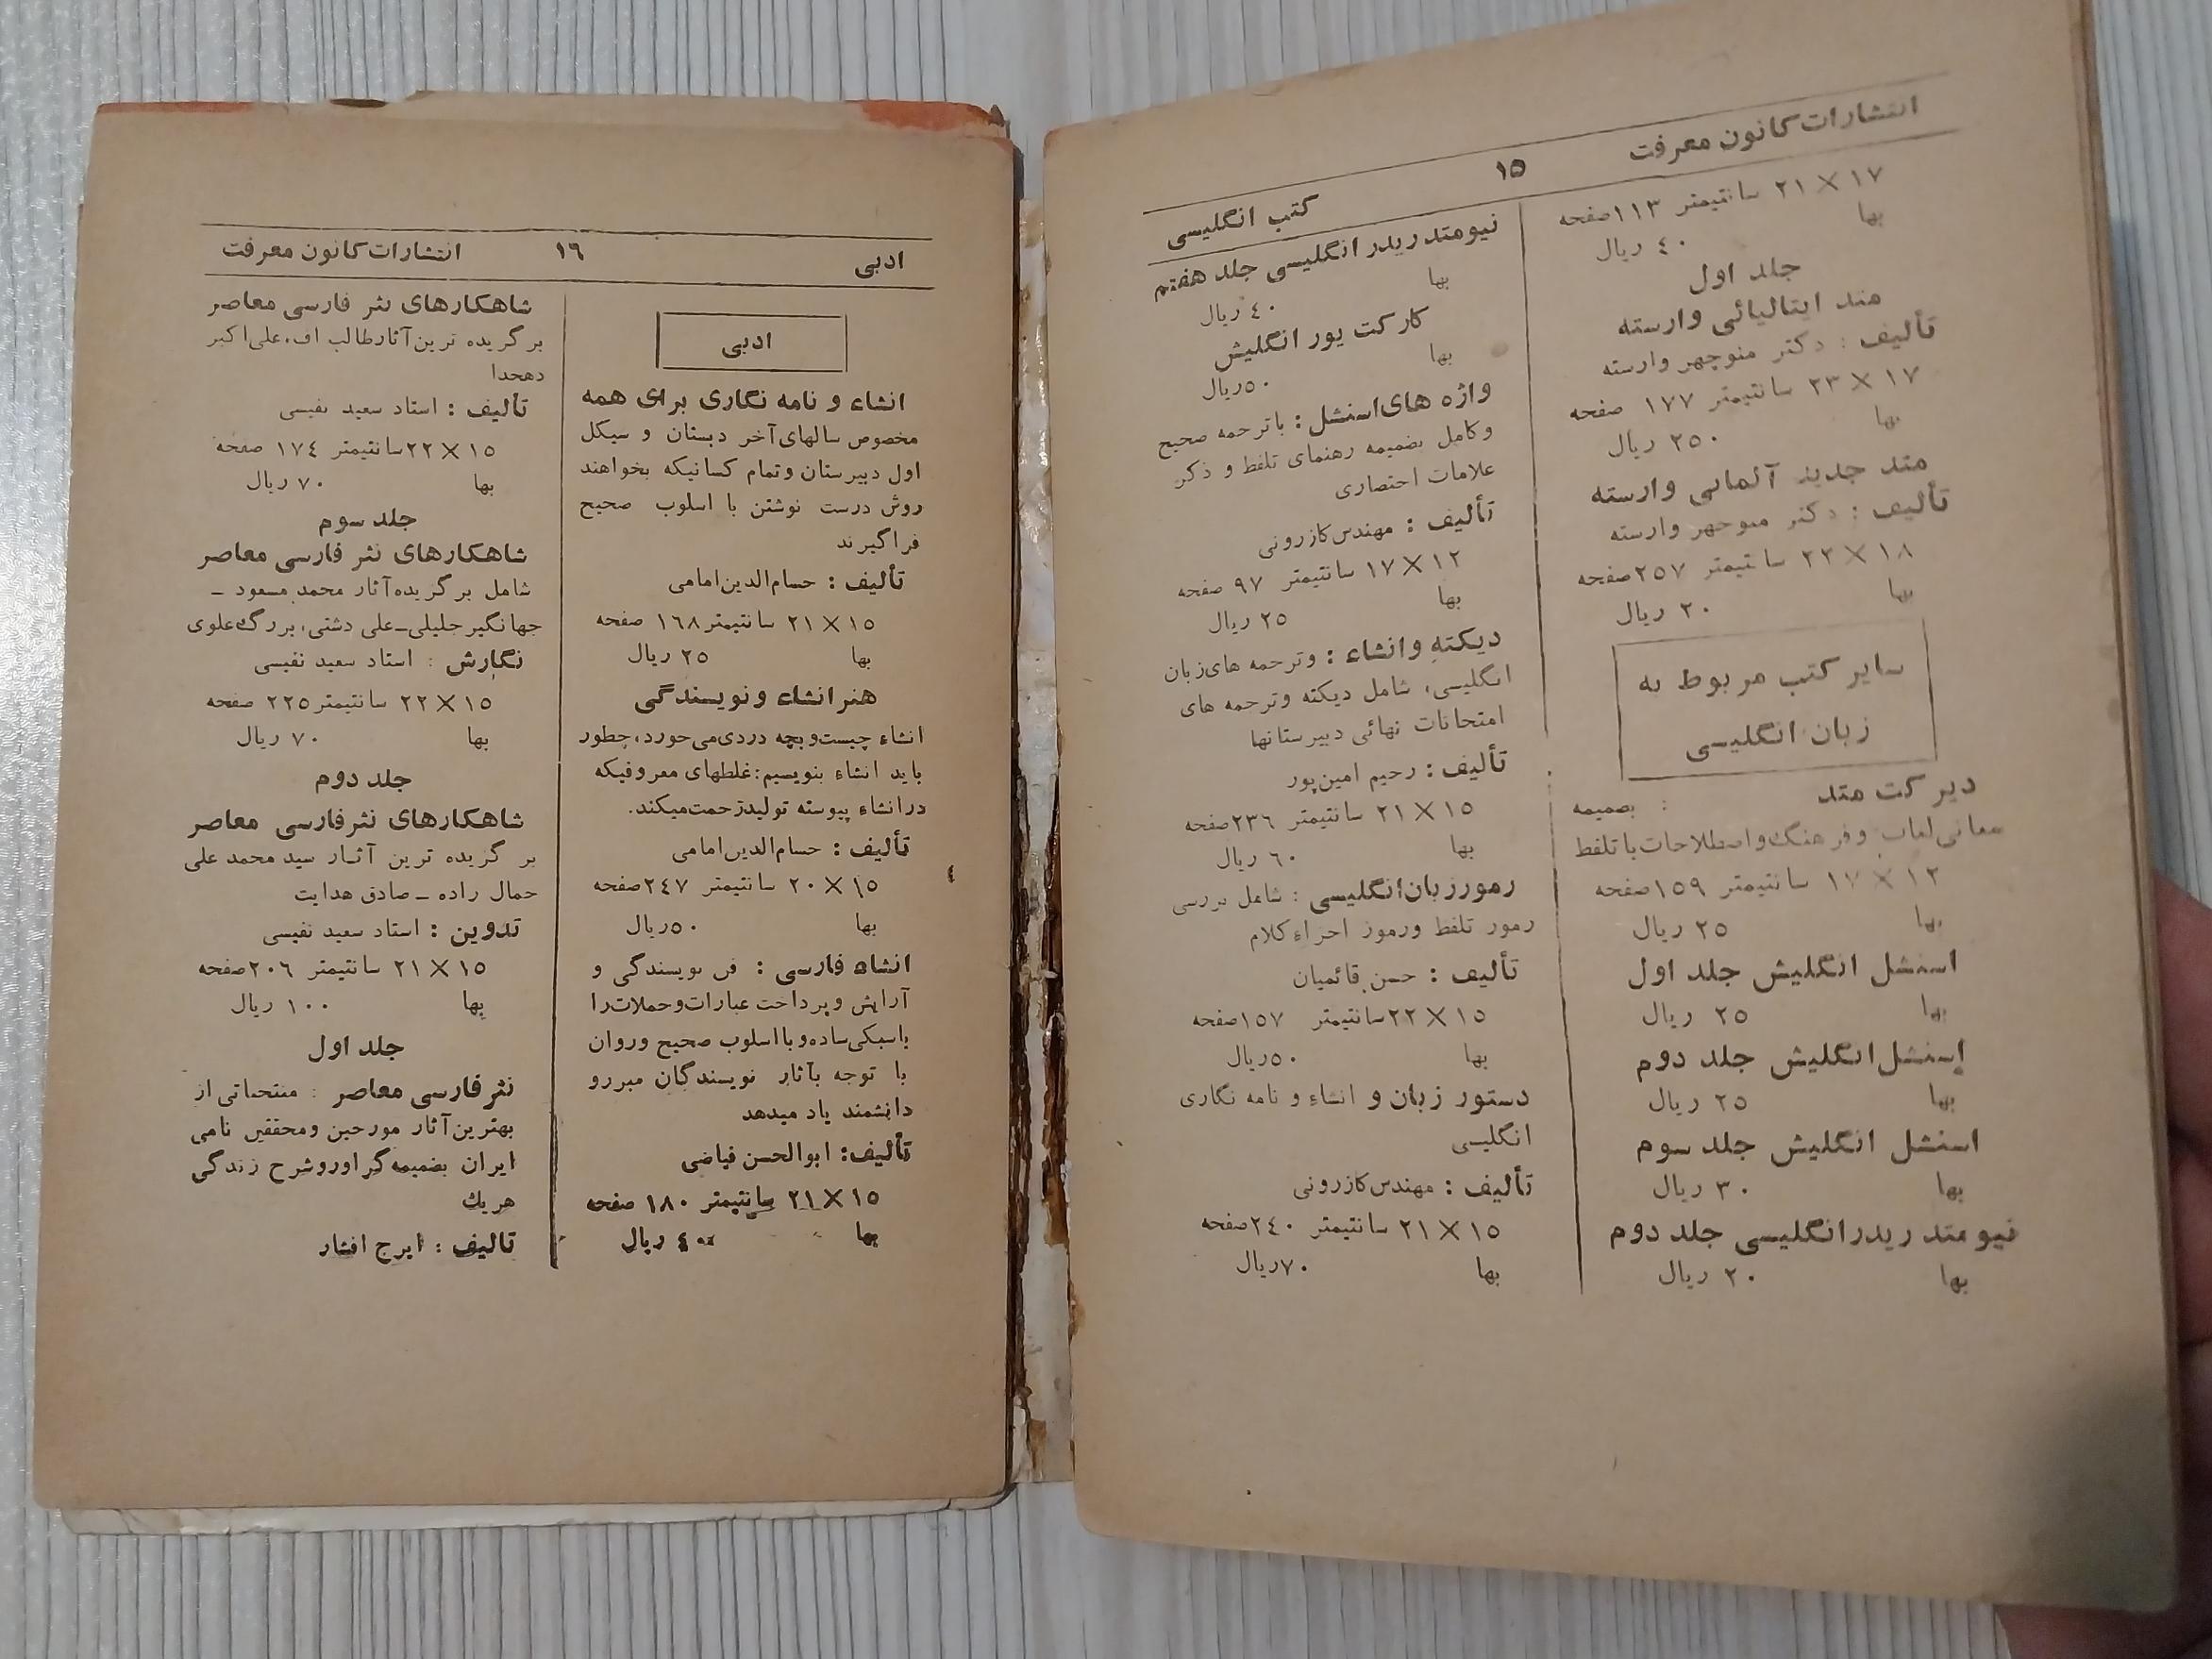 انتشارات کانون معرفت
۱۵
کتب انگلیسی
۱۷ × ۲۱ سانتیمتر ۱۱۳ صفحه
بها ۴۰ ریال
جلد اول
متد ایتالیائی وارسته
تألیف : دکتر منوچهر وارسته
۱۷ × ۲۳ سانتیمتر ۱۷۷ صفحه
بها ۲۵۰ ریال
متد جدید آلمانی وارسته
تألیف : دکتر منوچهر وارسته
۱۸ × ۲۲ سانتیمتر ۲۵۷ صفحه
بها ۲۰ ریال
سایر کتب مربوط به
زبان انگلیسی
دیرکت متد : بضمیمه
معانی لغات وفرهنگ واصطلاحات با تلفظ
۱۲ × ۱۷ سانتیمتر ۱۵۹ صفحه
بها ۲۵ ریال
اسنشل انگلیش جلد اول
بها ۲۵ ریال
اسنشل انگلیش جلد دوم
بها ۲۵ ریال
اسنشل انگلیش جلد سوم
بها ۳۰ ریال
نیو متد ریدر انگلیسی جلد دوم
بها ۲۰ ریال
نیومتد ریدر انگلیسی جلد هفتم
بها ۴۰ ریال
کارکت یور انگلیش
بها ۵۰ ریال
واژه های اسنشل : با ترجمه صحیح
وکامل بضمیمه رهنمای تلفظ و ذکر
علامات اختصاری
تألیف : مهندس کازرونی
۱۲ × ۱۷ سانتیمتر ۹۷ صفحه
بها ۲۵ ریال
دیکته وانشاء : وترجمه های زبان
انگلیسی، شامل دیکته وترجمه های
امتحانات نهائی دبیرستانها
تألیف : رحیم امین پور
۱۵ × ۲۱ سانتیمتر ۲۳۶ صفحه
بها ۶۰ ریال
رموز زبان انگلیسی : شامل بررسی
رموز تلفظ ورموز اجزاء کلام
تألیف : حسن قائمیان
۱۵ × ۲۲ سانتیمتر ۱۵۷ صفحه
بها ۵۰ ریال
دستور زبان و انشاء و نامه نگاری
انگلیسی
تألیف : مهندس کازرونی
۱۵ × ۲۱ سانتیمتر ۲۴۰ صفحه
بها ۷۰ ریال
ادبی
۱۶
انتشارات کانون معرفت
ادبی
انشاء و نامه نگاری برای همه
مخصوص سالهای آخر دبستان و سیکل
اول دبیرستان وتمام کسانیکه بخواهند
روش درست نوشتن با اسلوب صحیح
فراگیرند
تألیف : حسام الدین امامی
۱۵ × ۲۱ سانتیمتر ۱۶۸ صفحه
بها ۲۵ ریال
هنر انشاء ونویسندگی
انشاء چیست وبچه دردی می خورد، چطور
باید انشاء بنویسیم : غلطهای معروفیکه
در انشاء پیوسته تولید زحمت میکند.
تألیف : حسام الدین امامی
۱۵ × ۲۰ سانتیمتر ۲۴۷ صفحه
بها ۵۰ ریال
انشاء فارسی : فن نویسندگی و
آرایش وپرداخت عبارات وجملات را
باسبکی ساده وبا اسلوب صحیح وروان
با توجه بآثار نویسندگان مبرز و
دانشمند یاد میدهد
تألیف: ابوالحسن فیاضی
۱۵ × ۲۱ سانتیمتر ۱۸۰ صفحه
بها ۴۰ ریال
٤
شاهکارهای نثر فارسی معاصر
برگزیده ترین آثار طالب اف، علی اکبر
دهخدا
تألیف : استاد سعید نفیسی
۱۵ × ۲۲ سانتیمتر ۱۷۴ صفحه
بها ۷۰ ریال
جلد سوم
شاهکارهای نثر فارسی معاصر
شامل برگزیده آثار محمد مسعود ـ
جهانگیر جلیلی ـ علی دشتی، بزرگ علوی
نگارش : استاد سعید نفیسی
۱۵ × ۲۲ سانتیمتر ۲۲۵ صفحه
بها ۷۰ ریال
جلد دوم
شاهکارهای نثر فارسی معاصر
بر گزیده ترین آثار سید محمد علی
جمال زاده ـ صادق هدایت
تدوین : استاد سعید نفیسی
۱۵ × ۲۱ سانتیمتر ۲۰۶ صفحه
بها ۱۰۰ ریال
جلد اول
نثر فارسی معاصر : منتخباتی از
بهترین آثار مورخین ومحققین نامی
ایران بضمیمه گراور وشرح زندگی
هریك
تالیف : ایرج افشار